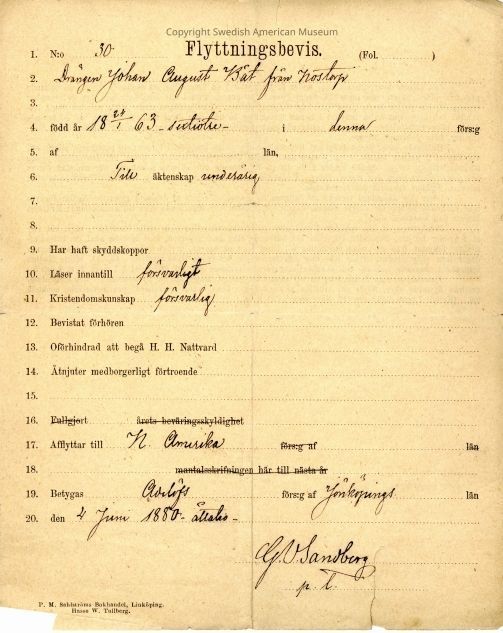 Copyright Swedish American Museum
Flyttningsbevis.
1. N:o 30 (Fol. )
2. Drängen Johan August Båt från Kostorp
3.
4. född år 18 24/1 63 - sextiotre - i denna förs:g
5. af län,
6. Till äktenskap underårig
7.
8.
9. Har haft skyddskoppor
10. Läser innantill försvarligt
11. Kristendomskunskap försvarlig
12. Bevistat förhören
13. Oförhindrad att begå H. H. Nattvard
14. Åtnjuter medborgerligt förtroende
15.
16. Fullgjort årets beväringsskyldighet
17. Afflyttar till N. Amerika förs:g af län
18. mantalsskrifningen här till nästa år
19. Betygas Adelöfs förs:g af Jönköpings län
20. den 4 Juni 1880 - åttatio -
G. V. Sandberg
p. l.
P. M. Sahlströms Bokhandel, Linköping.
Hasso W. Tullberg.